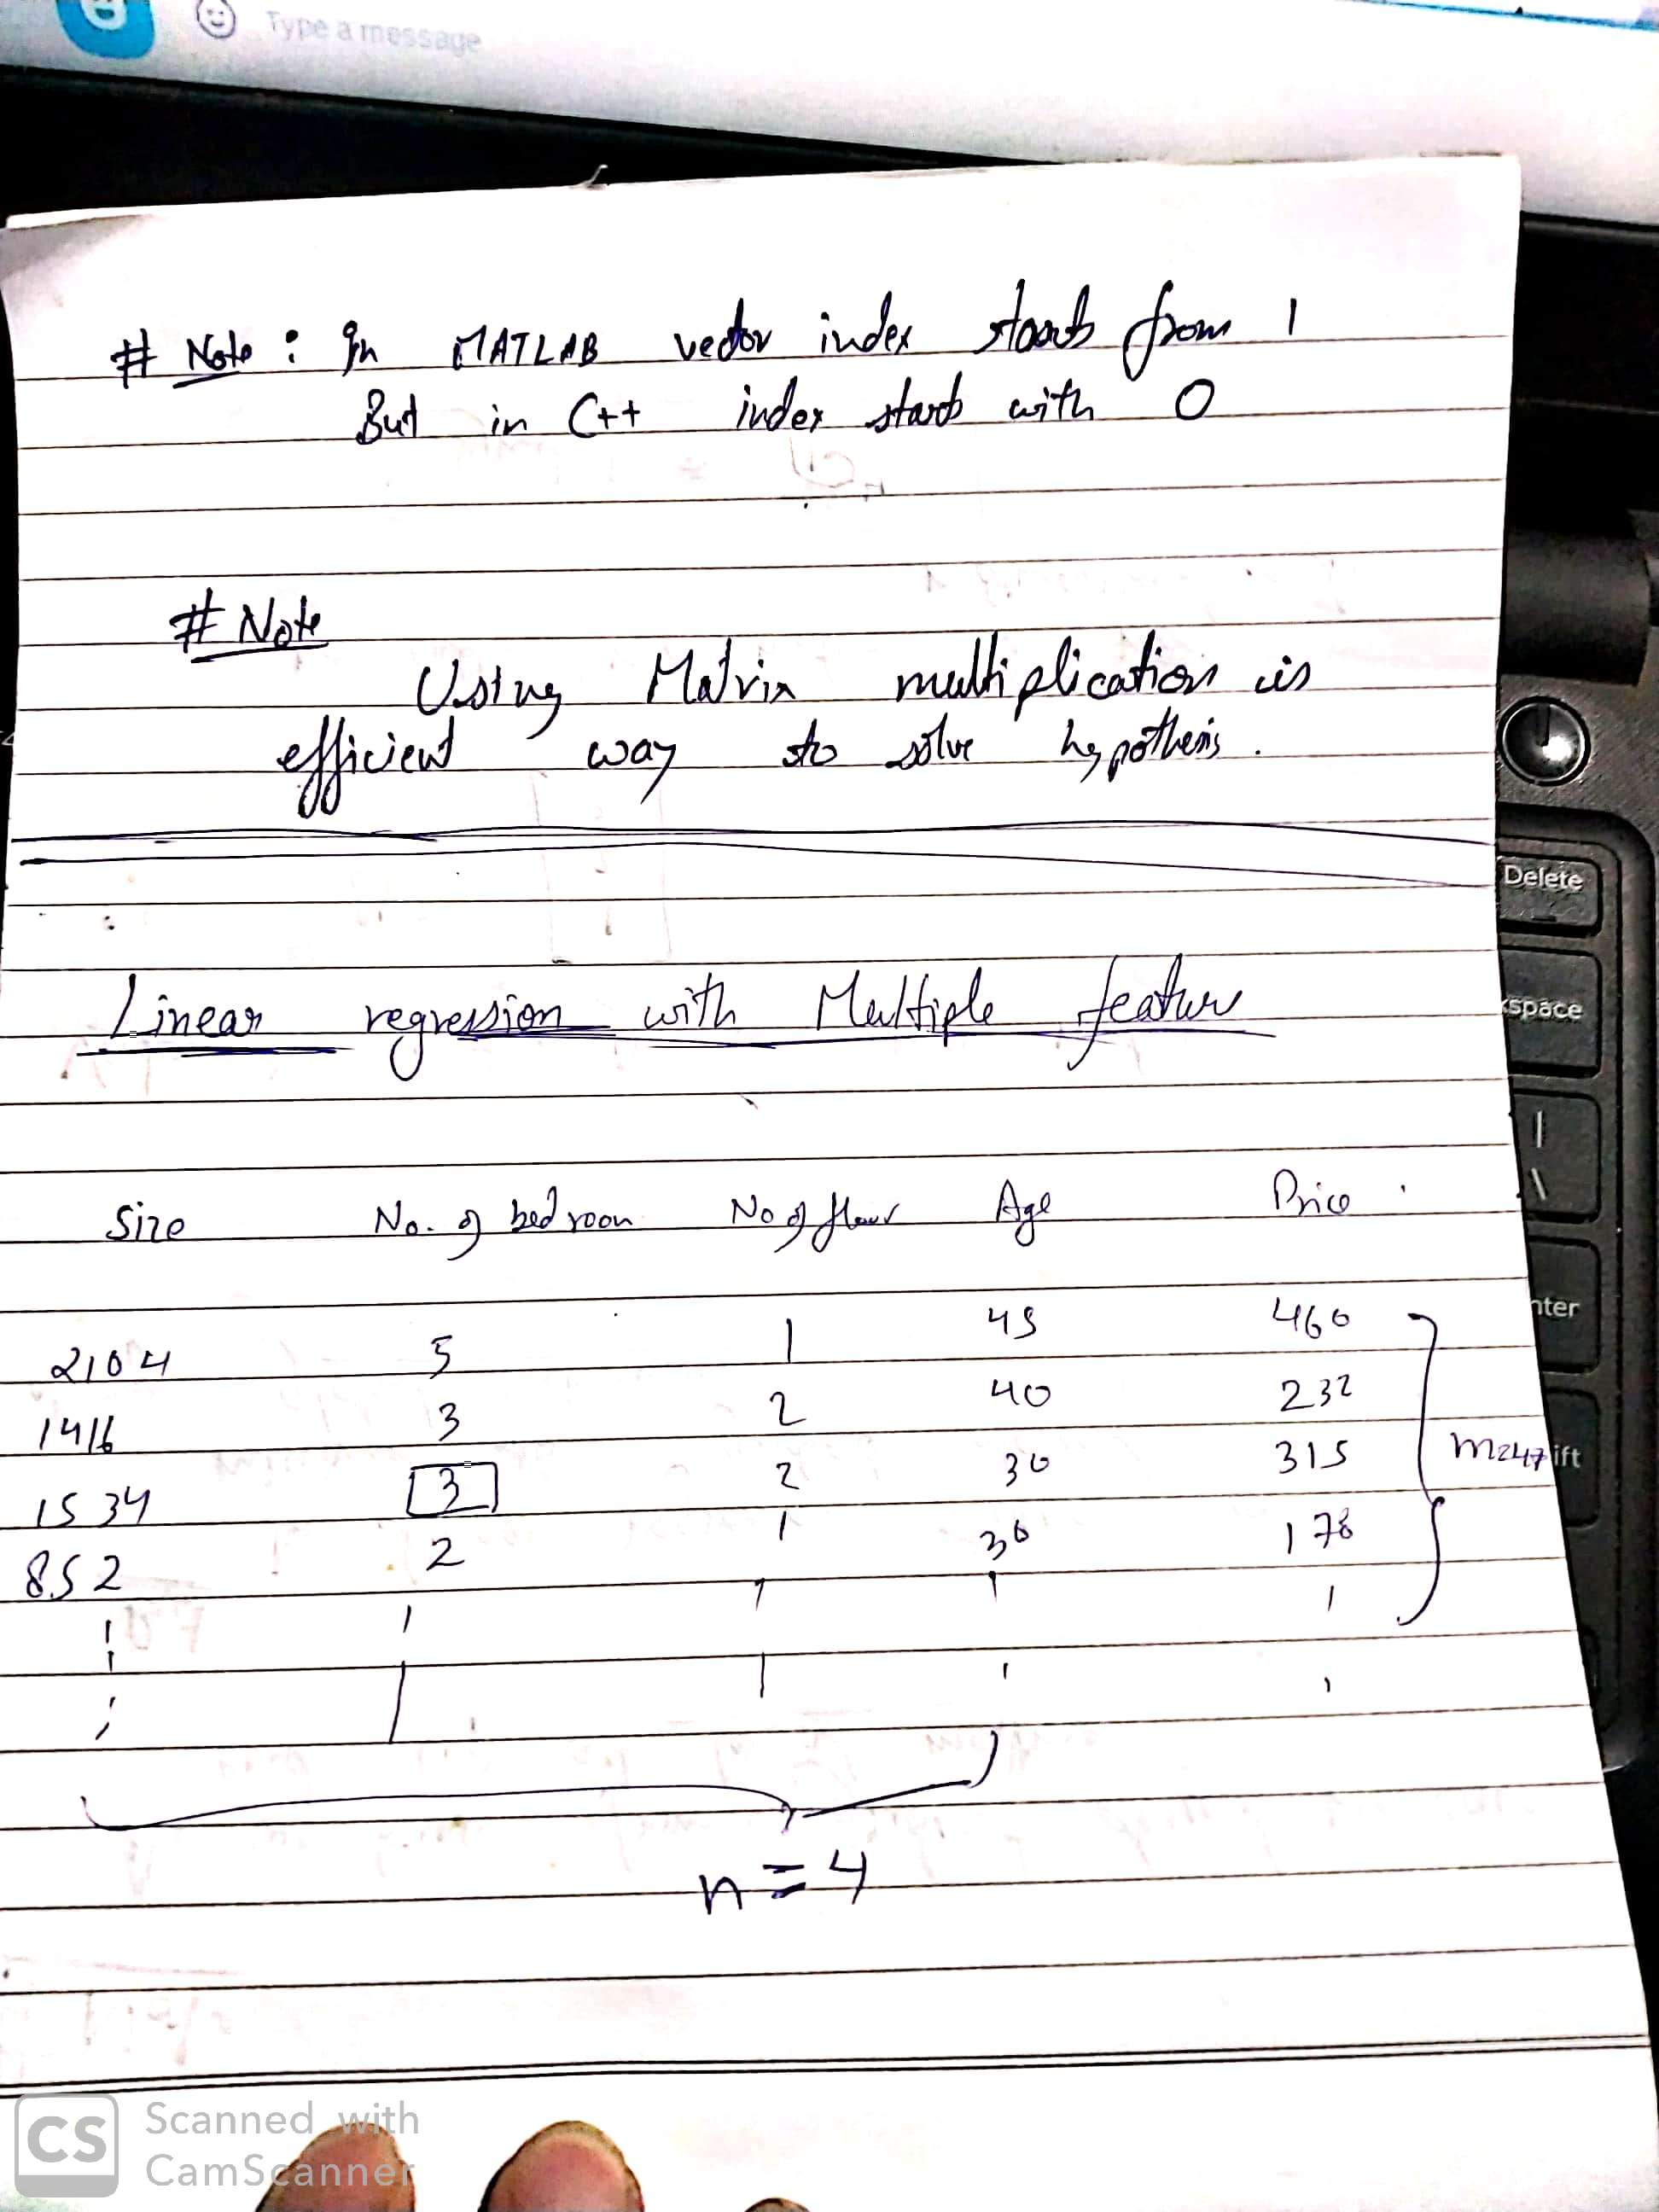 Type a message
# Note : In MATLAB vector index starts from 1
But in C++ index starts with 0
# Note
Using Matrix multiplication is
efficient way to solve hypothesis.
Delete
Linear regression with Multiple feature
space
Size No. of bedroom No of floor Age Price
nter
2104 5 1 45 460
1416 3 2 40 232
1534 3 2 30 315 m=47 ift
852 2 1 36 178
n = 4
CS Scanned with
CamScanner